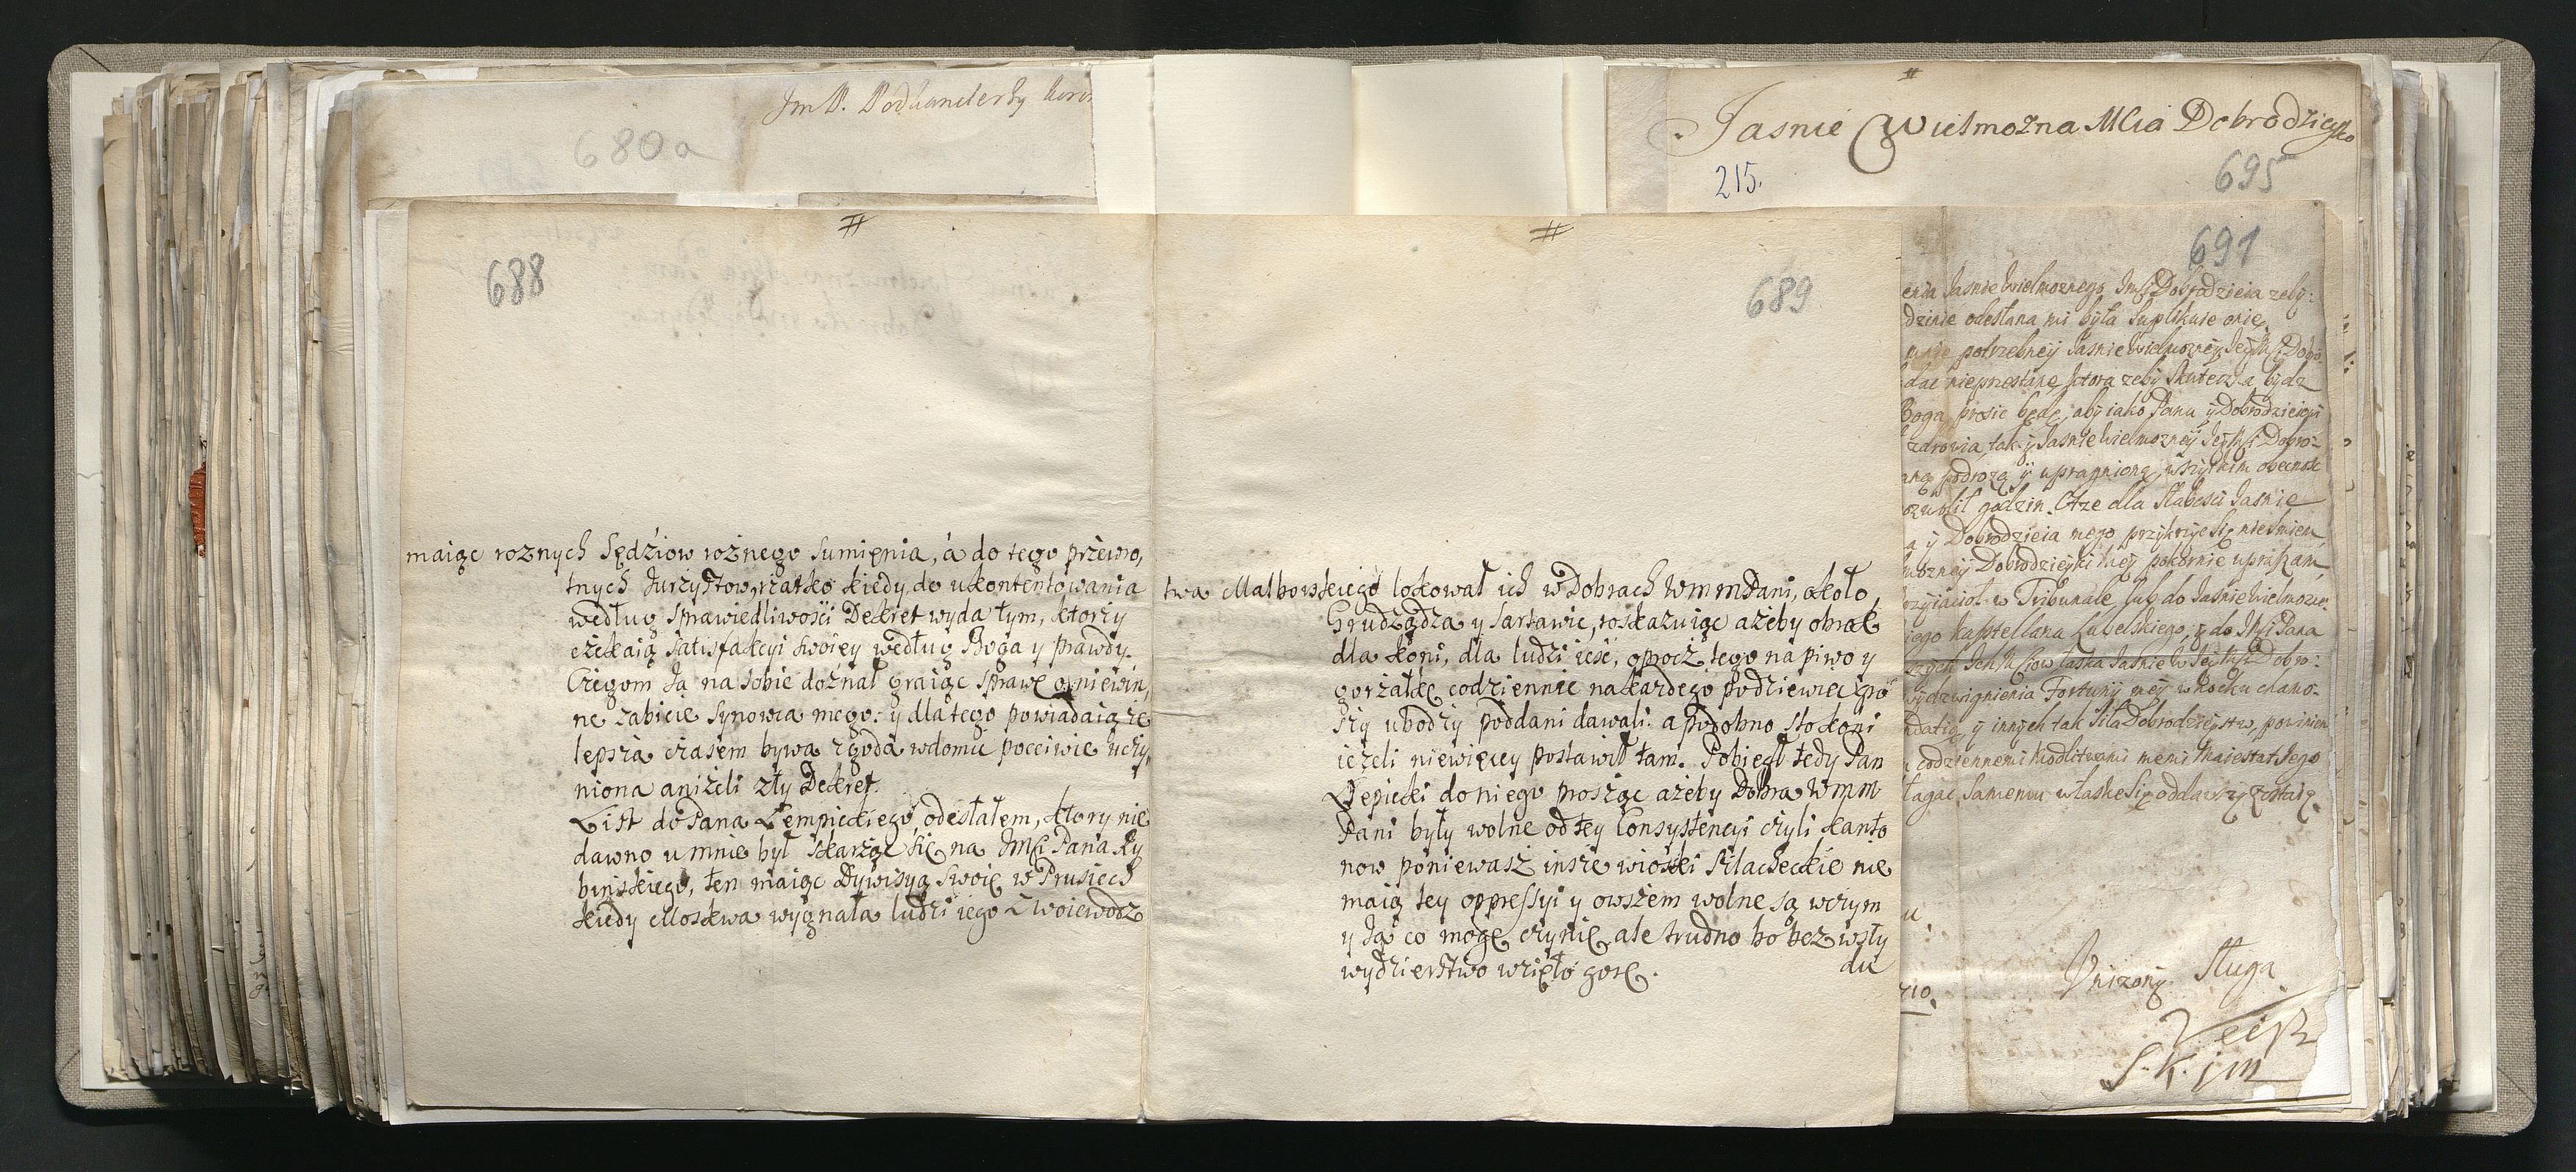 Jm P. Podkanclerzy koro
680a
Jasnie Wielmozna MCia Dobrodzieyko
215.
695
#
688
maiąc roznych Sędziow rożnego sumięnia, á do tego przewro,
tnych Jurzystow, rzatko kiedy do ukontentowania
według sprawiedliwości Dekret wyda tym, ktorzy
czekaią satisfakcyi swoiey według Boga y prawdy.
Czegom Ja na sobie doznał graiąc sprawę o niewin,
ne zabicie synowca mego: y dla tego powiadaią ze
lepsza czasem bywa zgoda w domu pocciwie uczy,
niona aniżeli zły Dekret.
List do Pana Łempickiego odesłałem, ktory nie
dawno u mnie był skarżąc się na JmCi Pana Ry
bińskiego, ten maiąc Dywisyą swoię w Prusiech
kiedy Moskwa wygnała ludzi iego z Woiewodz
#
689
twa Malborskiego lokował ich w Dobrach WmmPani, około
Grudządza y Sartawic, roskazuiąc ażeby obrok
dla koni, dla ludzi ieść, oprocz tego na piwo y
gorzałkę codziennie na każdego po dziewięć gro
szy ubodzy poddani dawali: a podobno sto koni
ieżeli niewięcey postawił tam. Pobiegł tedy Pan
Łępicki do niego prosząc ażeby Dobra Wmm
Pani były wolne od tey Consystencyi czyli kanto
now ponieważ insze wioski szlacheckie nie
maią tey oppressyi y owszem wolne są w czym
y Ja co mogę czynię, ale trudno bo bez wsty
du
wydzierstwo wzięło gorę.
691
enia Jasnie Wielmoznego JmCi Dobrodzieia zeby:
dzinie odesłana mi była suplikuie onię
potrzebney Jasnie Wielmozney JeyMCi Dobro
dac nieprzestanę, ktora zeby skuteczną bydz
Boga prosic będę, aby iako Panu y Dobrodzieiowi
zdrowia, tak y Jasnie Wielmozney JeyMCi Dobro-
podrozą y upragnioną wszytkim obecnosc
godzin. A ze dla słabosci Jasnie
a y Dobrodzieia mego przykrzyc się niesmiem,
mozney Dobrodzieyki mey pokornie upraszam,
rzyiacioł w Tribunale, lub do Jasnie Wielmozne-
iego Kasztellana Lubelskiego, y do JmCi Pana
łaska Jasnie W JeyMCi Dobro:
wydzwignienia Fortuny mey w Roku
y innych tak siła Dobrodzieystw, powinien
codziennemi Modlitwami memi Maiestat Jego
łagac, samemu w łaskę się oddawszy zostaię.
Unizony Sługa
S. K. j m